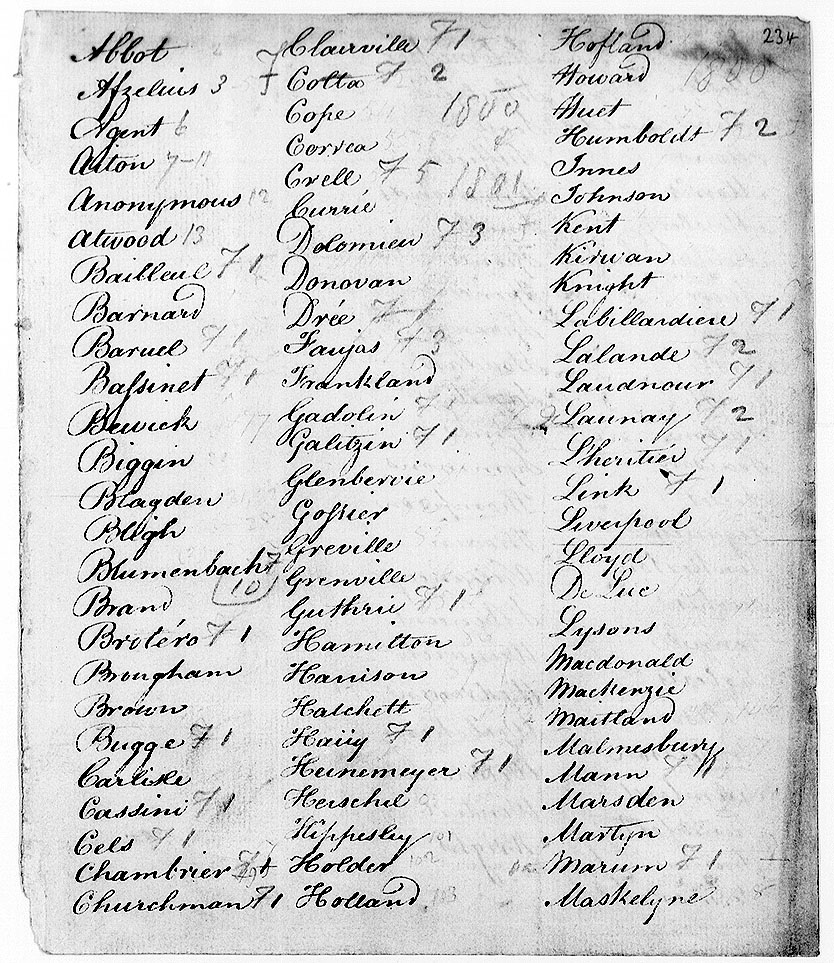 234
Abbot
Afzelius 3
Agent 6
Aiton 7-11
Anonymous 12
Atwood 13
Bailleul F 1
Barnard
Baruel F 1
Baſsinet F 1
Bewick
Biggin
Blagden
Bligh
Blumenbach F
10
Brand
Brotéro F 1
Brougham
Brown
Bugge F 1
Carlisle
Caſsini F 1
Cels F 1
Chambrier F 1
Churchman F 1
Clairville F 1
Cotta F 2
Cope
1800
Correa
Crell F 5
1801
Currie
Dolomieu F 3
Donovan
Drée F 1
Faujas F 3
Frankland
Gadolin F
Galitzin F 1
Glenbervie
Goſsier
Greville
Grenville
Guthrie F 1
Hamilton
Harrison
Hatchett
Haüy F 1
Heinemeyer F 1
Herschel
Hippesley 101
Holder 102
Holland 103
Hofland
Howard
1800
Huet
Humboldt F 2
Innes
Johnson
Kent
Kirwan
Knight
Labillardiere F 1
Lalande F 2
Laudnour F 1
Launay F 2
L'heritiér F 1
Link F 1
Liverpool
Lloyd
De Luc
Lysons
Macdonald
Mackenzie
Maitland
Malmesbury
Mann F 1
Marsden
Martyn
Marum F 1
Maskelyne